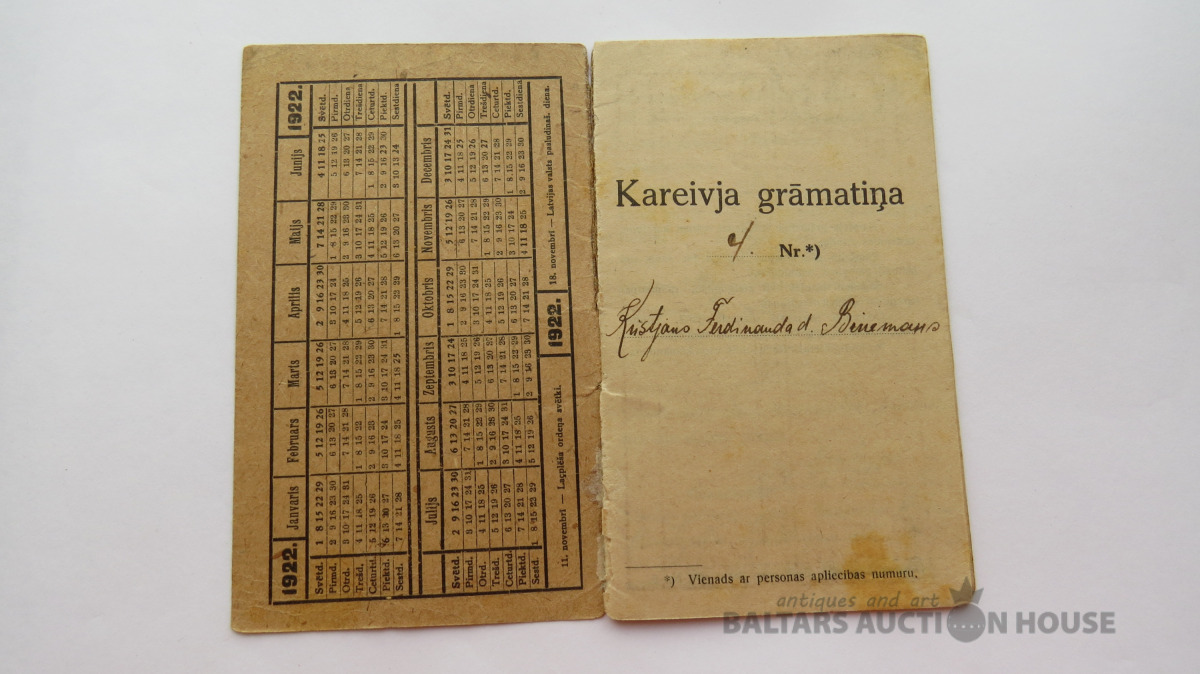 1922. Janvaris Februars Marts Aprilis Maijs Junijs 1922.
Svētd. 1 8 15 22 29 5 12 19 26 5 12 19 26 2 9 16 23 30 7 14 21 28 4 11 18 25 Svētd.
Pirmd. 2 9 16 23 30 6 13 20 27 6 13 20 27 3 10 17 24 1 8 15 22 29 5 12 19 26 Pirmd.
Otrd. 3 10 17 24 31 7 14 21 28 7 14 21 28 4 11 18 25 2 9 16 23 30 6 13 20 27 Otrdiena
Trešd. 4 11 18 25 1 8 15 22 1 8 15 22 29 5 12 19 26 3 10 17 24 31 7 14 21 28 Trešdiena
Ceturtd. 5 12 19 26 2 9 16 23 2 9 16 23 30 6 13 20 27 4 11 18 25 1 8 15 22 29 Ceturtd.
Piektd. 6 13 20 27 3 10 17 24 3 10 17 24 31 7 14 21 28 5 12 19 26 2 9 16 23 30 Piektd.
Sestd. 7 14 21 28 4 11 18 25 4 11 18 25 1 8 15 22 29 6 13 20 27 3 10 13 24 Sestdiena
Julijs Augusts Zeptembris Oktobris Novembris Decembris
Svētd. 2 9 16 23 30 6 13 20 27 3 10 17 24 1 8 15 22 29 5 12 19 26 3 10 17 24 31 Svētd.
Pirmd. 3 10 17 24 31 7 14 21 28 4 11 18 25 2 9 16 23 30 6 13 20 27 4 11 18 25 Pirmd.
Otrd. 4 11 18 25 1 8 15 22 29 5 12 19 26 3 10 17 24 31 7 14 21 28 5 12 19 26 Otrdiena
Trešd. 5 12 19 26 2 9 16 23 30 6 13 20 27 4 11 18 25 1 8 15 22 29 6 13 20 27 Trešdiena
Ceturtd. 6 13 20 27 3 10 17 24 31 7 14 21 28 5 12 19 26 2 9 16 23 30 7 14 21 28 Ceturtd.
Piektd. 7 14 21 28 4 11 18 25 1 8 15 22 29 6 13 20 27 3 10 17 24 1 8 15 22 29 Piektd.
Sestd. 1 8 15 22 29 5 12 19 26 2 9 16 23 30 7 14 21 28 4 11 18 25 2 9 16 23 30 Sestdiena
11. novembrī — Laçplēša ordeņa svētki. 1922. 18. novembrī — Latvijas valsts pasludināš. diena.
Kareivja grāmatiņa
4. Nr.*)
Kristjans Ferdinanda d. Binemans
*) Vienads ar personas apliecibas numuru.
antiques and art
BALTARS AUCTION HOUSE